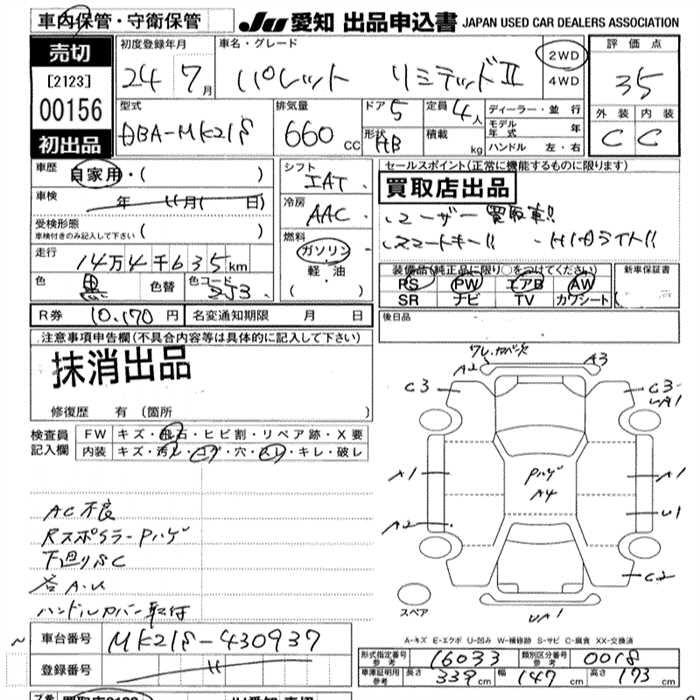 車内保管・守衛保管
JU 愛知 出品申込書 JAPAN USED CAR DEALERS ASSOCIATION
売切
[2123]
00156
初出品
初度登録年月
24 7月
車名・グレード
パレット リミテッドⅡ
2WD
4WD
評価点
3.5
外装 内装
C C
型式
DBA-MK21S
排気量
660 CC
ドア 5
形状 HB
定員 4人
積載 kg
ディーラー・並行
モデル年式 年
ハンドル 左・右
車歴 自家用・( )
車検 年 月( 日)
受検形態
車検付きのみ記入して下さい ( )
走行 14万4千635km
色 黒 色替 色コード ZJ3
シフト
IAT
冷房
AAC
燃料
ガソリン・
軽・油
( ・ )
セールスポイント(正常に機能するものに限ります)
買取店出品
ユーザー買取車!!
スマートキー!! HIDライト!!
装備品(純正品に限り○をつけてください)
PS PW エアB AW
SR ナビ TV カワシート
新車保証書
後日品
R券 10,170円 名変通知期限 月 日
注意事項申告欄(不具合内容等は具体的に記入して下さい)
抹消出品
修復歴 有 (箇所 )
検査員記入欄
FW キズ・飛石・ヒビ割・リペア跡・X要
内装 キズ・汚レ・コゲ・穴・スレ・キレ・破レ
AC不良
RスポイラーPハゲ
下廻りSC
各A.U
ハンドルカバー取付
ワレ、カバー欠
A2 A3
C3 C3
UA1
A1 Pハゲ A4 A1
A2 U1
C2
スペア
UA1
A-キズ E-エクボ U-凹み W-補修跡 S-サビ C-腐食 XX-交換済
車台番号 MK21S-430937
登録番号
形式指定番号 参考 16033 類別区分番号 参考 0018
車庫証明用 参考 長さ 339cm 幅 147cm 高さ 173cm